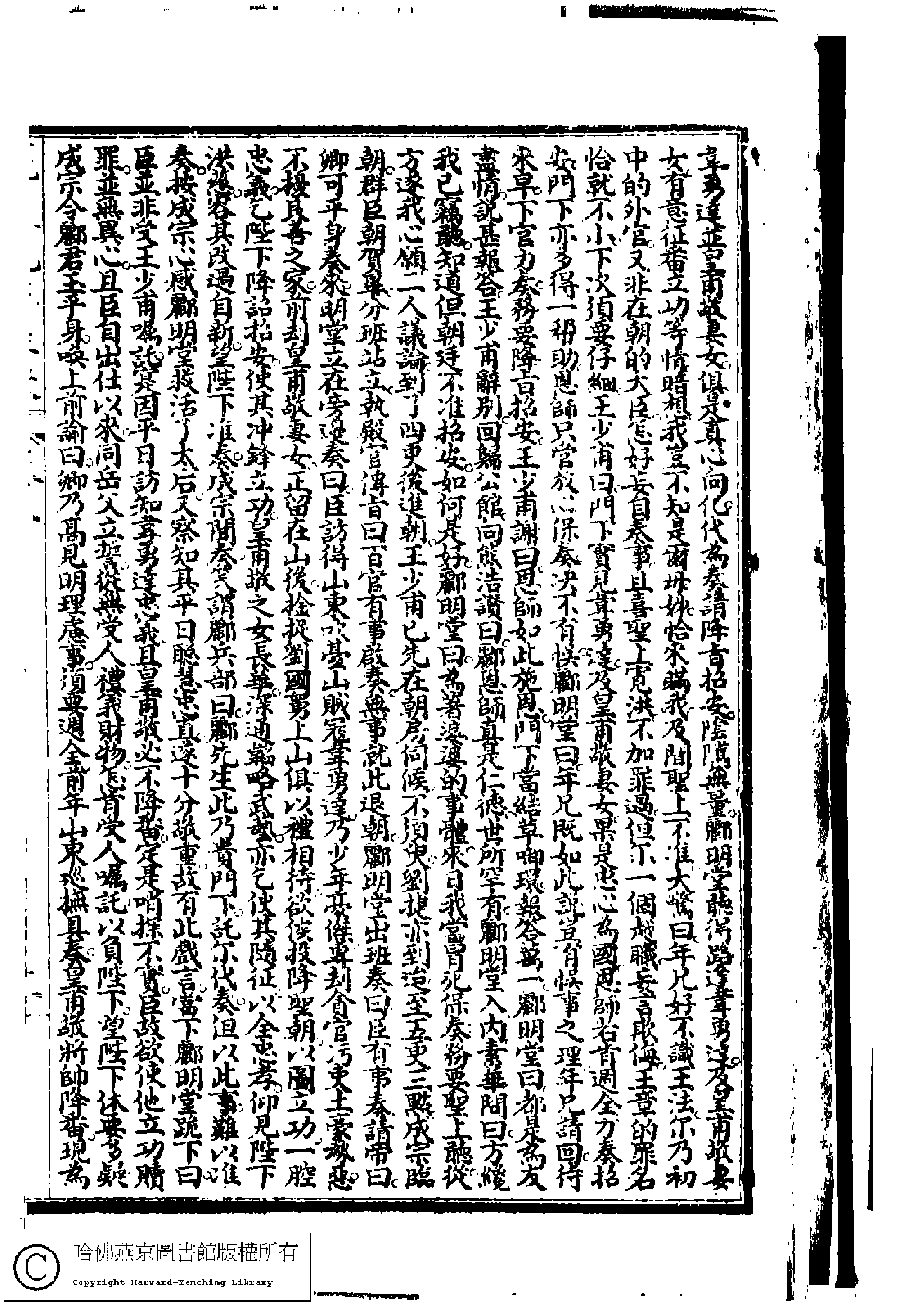 韋勇達並皇甫敬妻女俱是真心向化代為奏請降旨招安陰隲無量酈明堂聽得路逢韋勇達及皇甫敬妻
女有意征番立功等情暗想我豈不知是爾母妙恰來瞞我及聞聖上不准大驚曰年兄好不識王法尔乃初
中的外官又非在朝的大臣怎好妄自奏事且喜聖上寬洪不加罪過但尔一個越職妄言欺侮王章的罪名
恰就不小下次須要仔細王少甫曰門下實見韋勇達及皇甫敬妻女果是忠心為國恩師若肯週全力奏招
安門下亦多得一帮助恩師只管放心保奏決不有悞酈明堂曰年兄既如此諒豈有悞事之理年兄請回待
來早下官力奏務要降旨招安王少甫謝曰恩師如此施恩門下當結草啣環報答萬一酈明堂曰都是為友
盡情說甚報答王少甫辭別回歸公館向熊浩讚曰酈恩師真是仁德世所罕有酈明堂入內素華問曰方纔
我已竊聽知道但朝廷不准招安如何是好酈明堂曰為著婆婆的事體來日我當冒死保奏務要聖上聽從
方遂我心願二人議論到了四更後進朝王少甫已先在朝房伺候不須臾劉捷亦到迨至五更三點成宗臨
朝群臣朝賀畢分班站立執殿官傳旨曰百官有事啟奏無事就此退朝酈明堂出班奏曰臣有事奏請帝曰
卿可平身奏來明堂立在旁邊奏曰臣訪得山東吹臺山賊寇韋勇達乃少年英傑專刦貪官污吏土豪勢惡
不擾良善之家前刦皇甫敬妻女正留在山後拴捉劉國舅上山俱以禮相待欲俟投降聖朝以圖立功一腔
忠義乞陛下降詔招安使其冲鋒立功皇甫敬之女長華深通韜略武藝亦乞使其隨征以全忠孝仰見陛下
洪恩容其改過自新望陛下准奏成宗聞奏笑謂酈兵部曰酈先生此乃貴門下託尔代奏但以此事難以准
奏按成宗心感酈明堂救活了太后又察知其平日聰慧忠直遂十分敬重故有此戲言當下酈明堂跪下曰
臣並非受王少甫囑託是因平日訪知韋勇達忠義且皇甫敬必不降番定是哨探不實臣故欲使他立功贖
罪並無異心且臣自出仕以來同岳父立誓從無受人禮義財物怎肯受人囑託以負陛下望陛下休要多疑
成宗令酈君玉平身喚上前諭曰卿乃高見明理處事須要週全前年山東巡撫具奏皇甫敬將帥降番現為
哈佛燕京圖書館版權所有
Copyright Harvard-Yenching Library